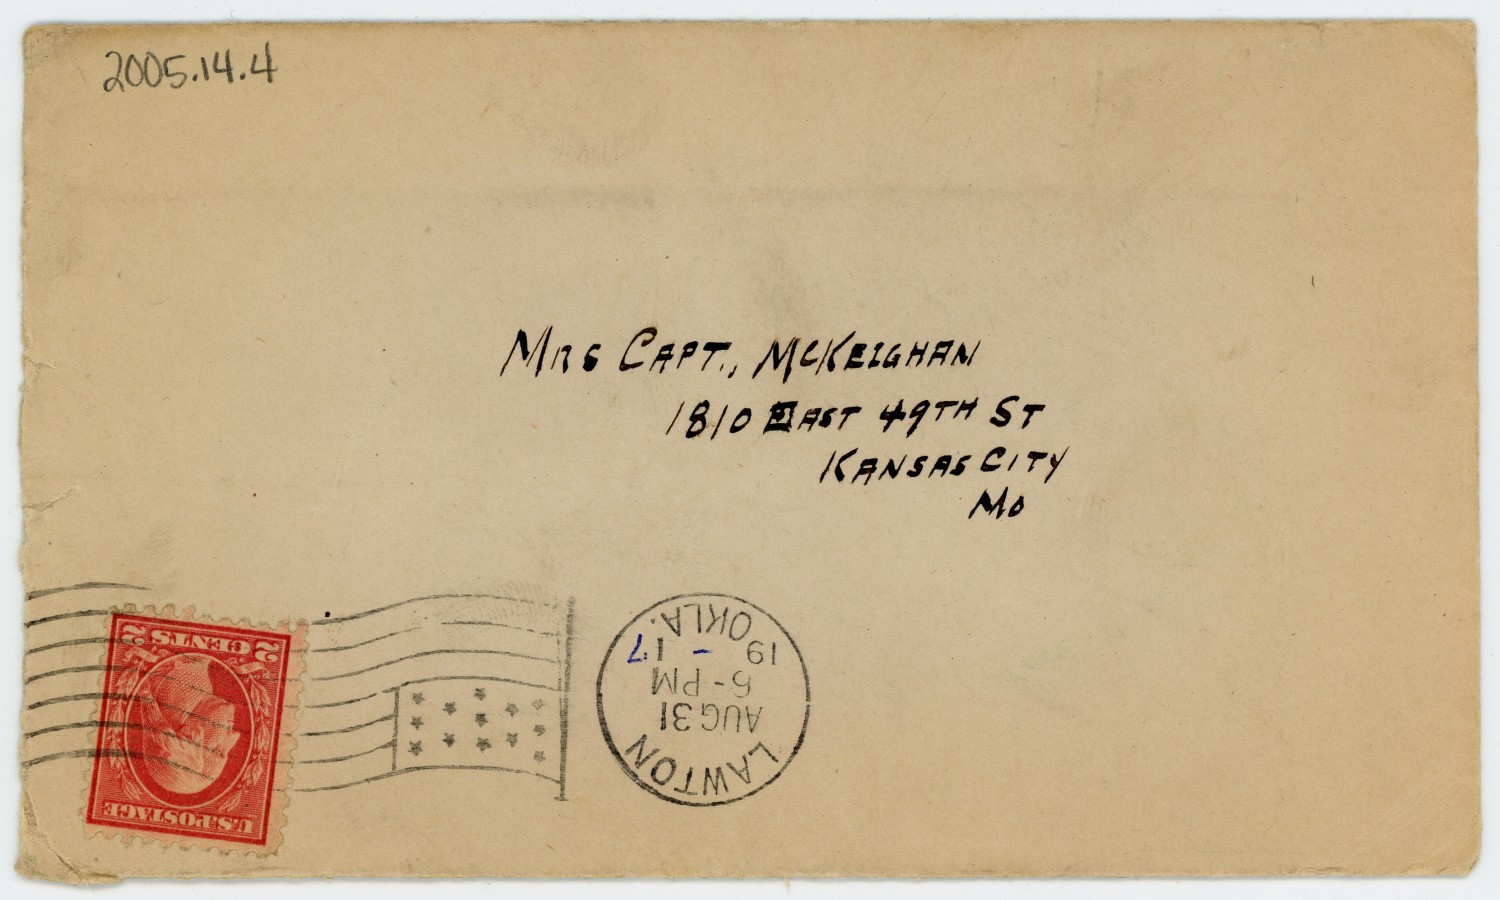 2005.14.4
MRS CAPT., MCKEIGHAN
1810 EAST 49TH ST
KANSAS CITY
MO
LAWTON
AUG 31
6-PM
19-17
OKLA.
U.S. POSTAGE
2 CENTS 2